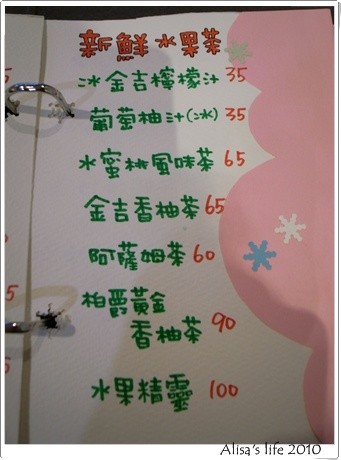 新鮮水果茶
冰金吉檸檬汁 35
葡萄柚汁(冰) 35
水蜜桃風味茶 65
金吉香柚茶 65
阿薩姆茶 60
柏爵黃金
香柚茶 90
水果精靈 100
Alisa's life 2010